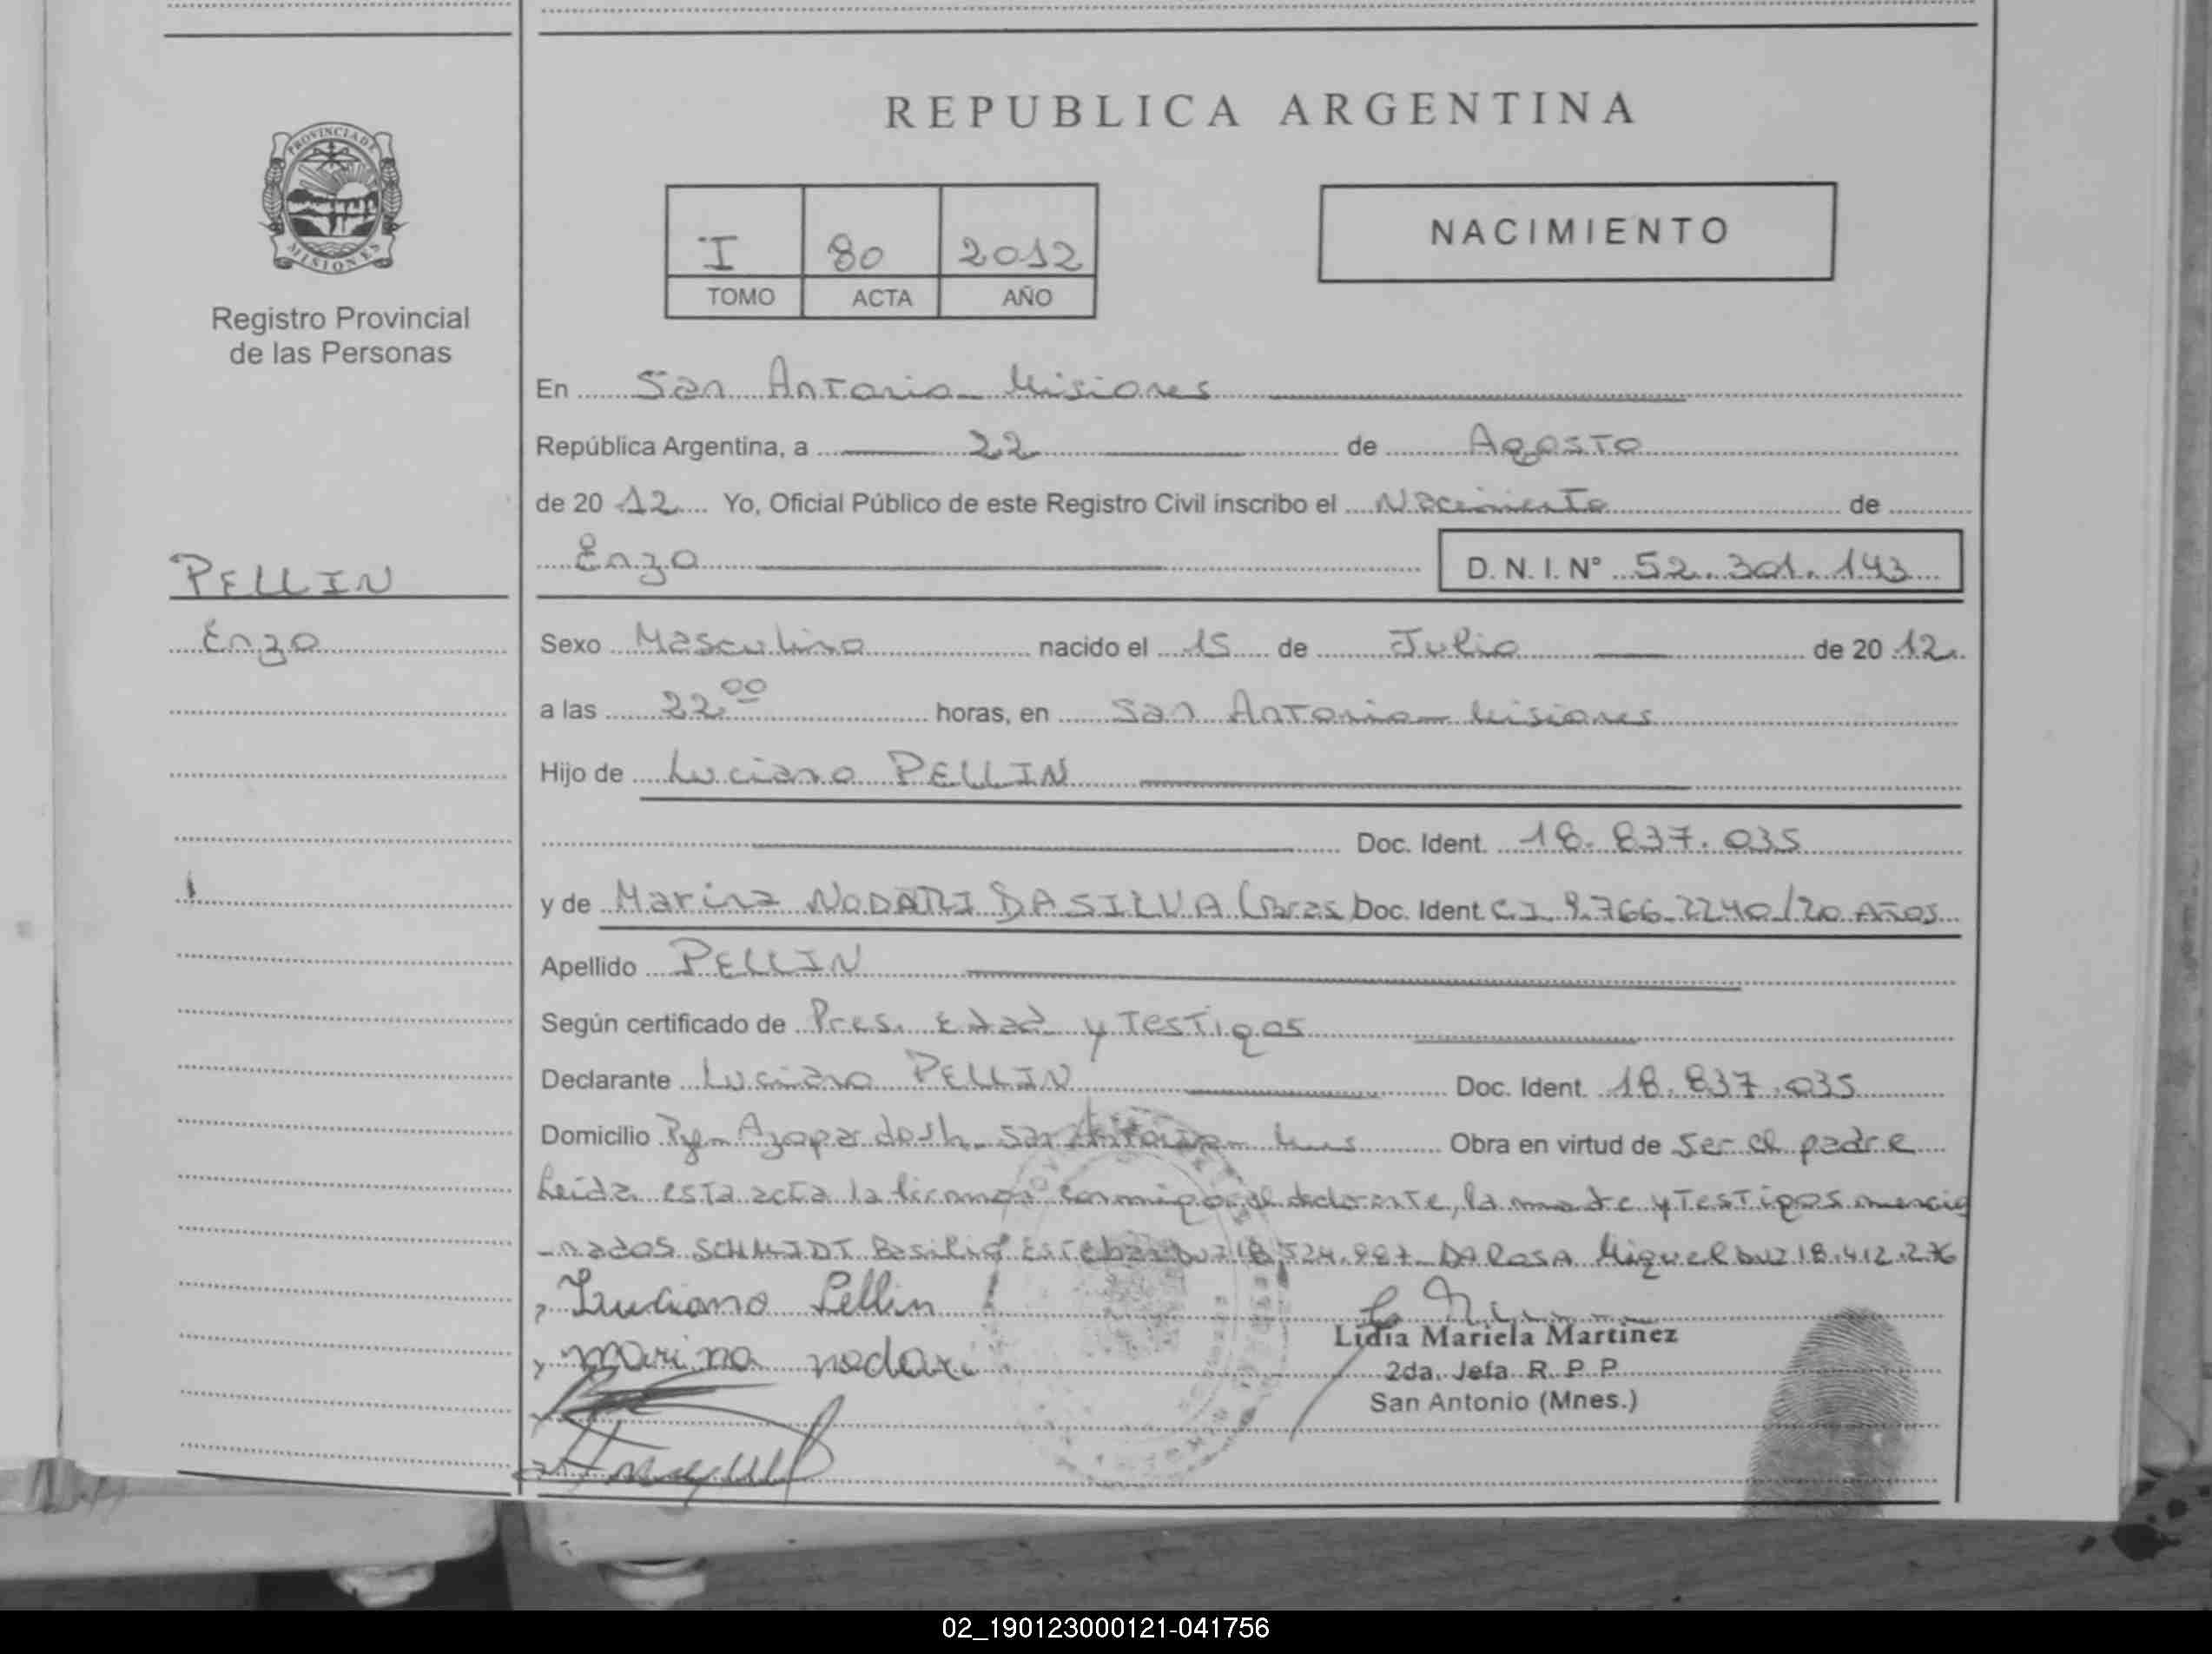 REPUBLICA ARGENTINA
PROVINCIA DE
MISIONES
Registro Provincial
de las Personas
I 80 2012
TOMO ACTA AÑO
NACIMIENTO
En San Antonio - Misiones
República Argentina, a 22 de Agosto
de 20 12 Yo, Oficial Público de este Registro Civil inscribo el Nacimiento de
Enzo D. N. I. N° 52.301.143
PELLIN
Enzo
Sexo Masculino nacido el 15 de Julio de 20 12
a las 22 00 horas, en San Antonio - Misiones
Hijo de Luciano PELLIN
Doc. Ident. 18.837.035
y de Marina NODARI DA SILVA (Bras Doc. Ident C.I. 9.766.2240/20 AÑOS
Apellido PELLIN
Según certificado de Pres. Edad y Testigos
Declarante Luciano PELLIN Doc. Ident. 18.837.035
Domicilio San Antonio Obra en virtud de Ser el padre
Leida esta acta la firman conmigo el declarante, la madre y Testigos mencio
-nados SCHMIDT Basilio Esteban DNI 18.524.987 - DA ROSA Miguel DNI 18.412.276
Luciano Pellin
Marina nodari
Lidia Mariela Martinez
2da. Jefa R. P. P.
San Antonio (Mnes.)
02_190123000121-041756